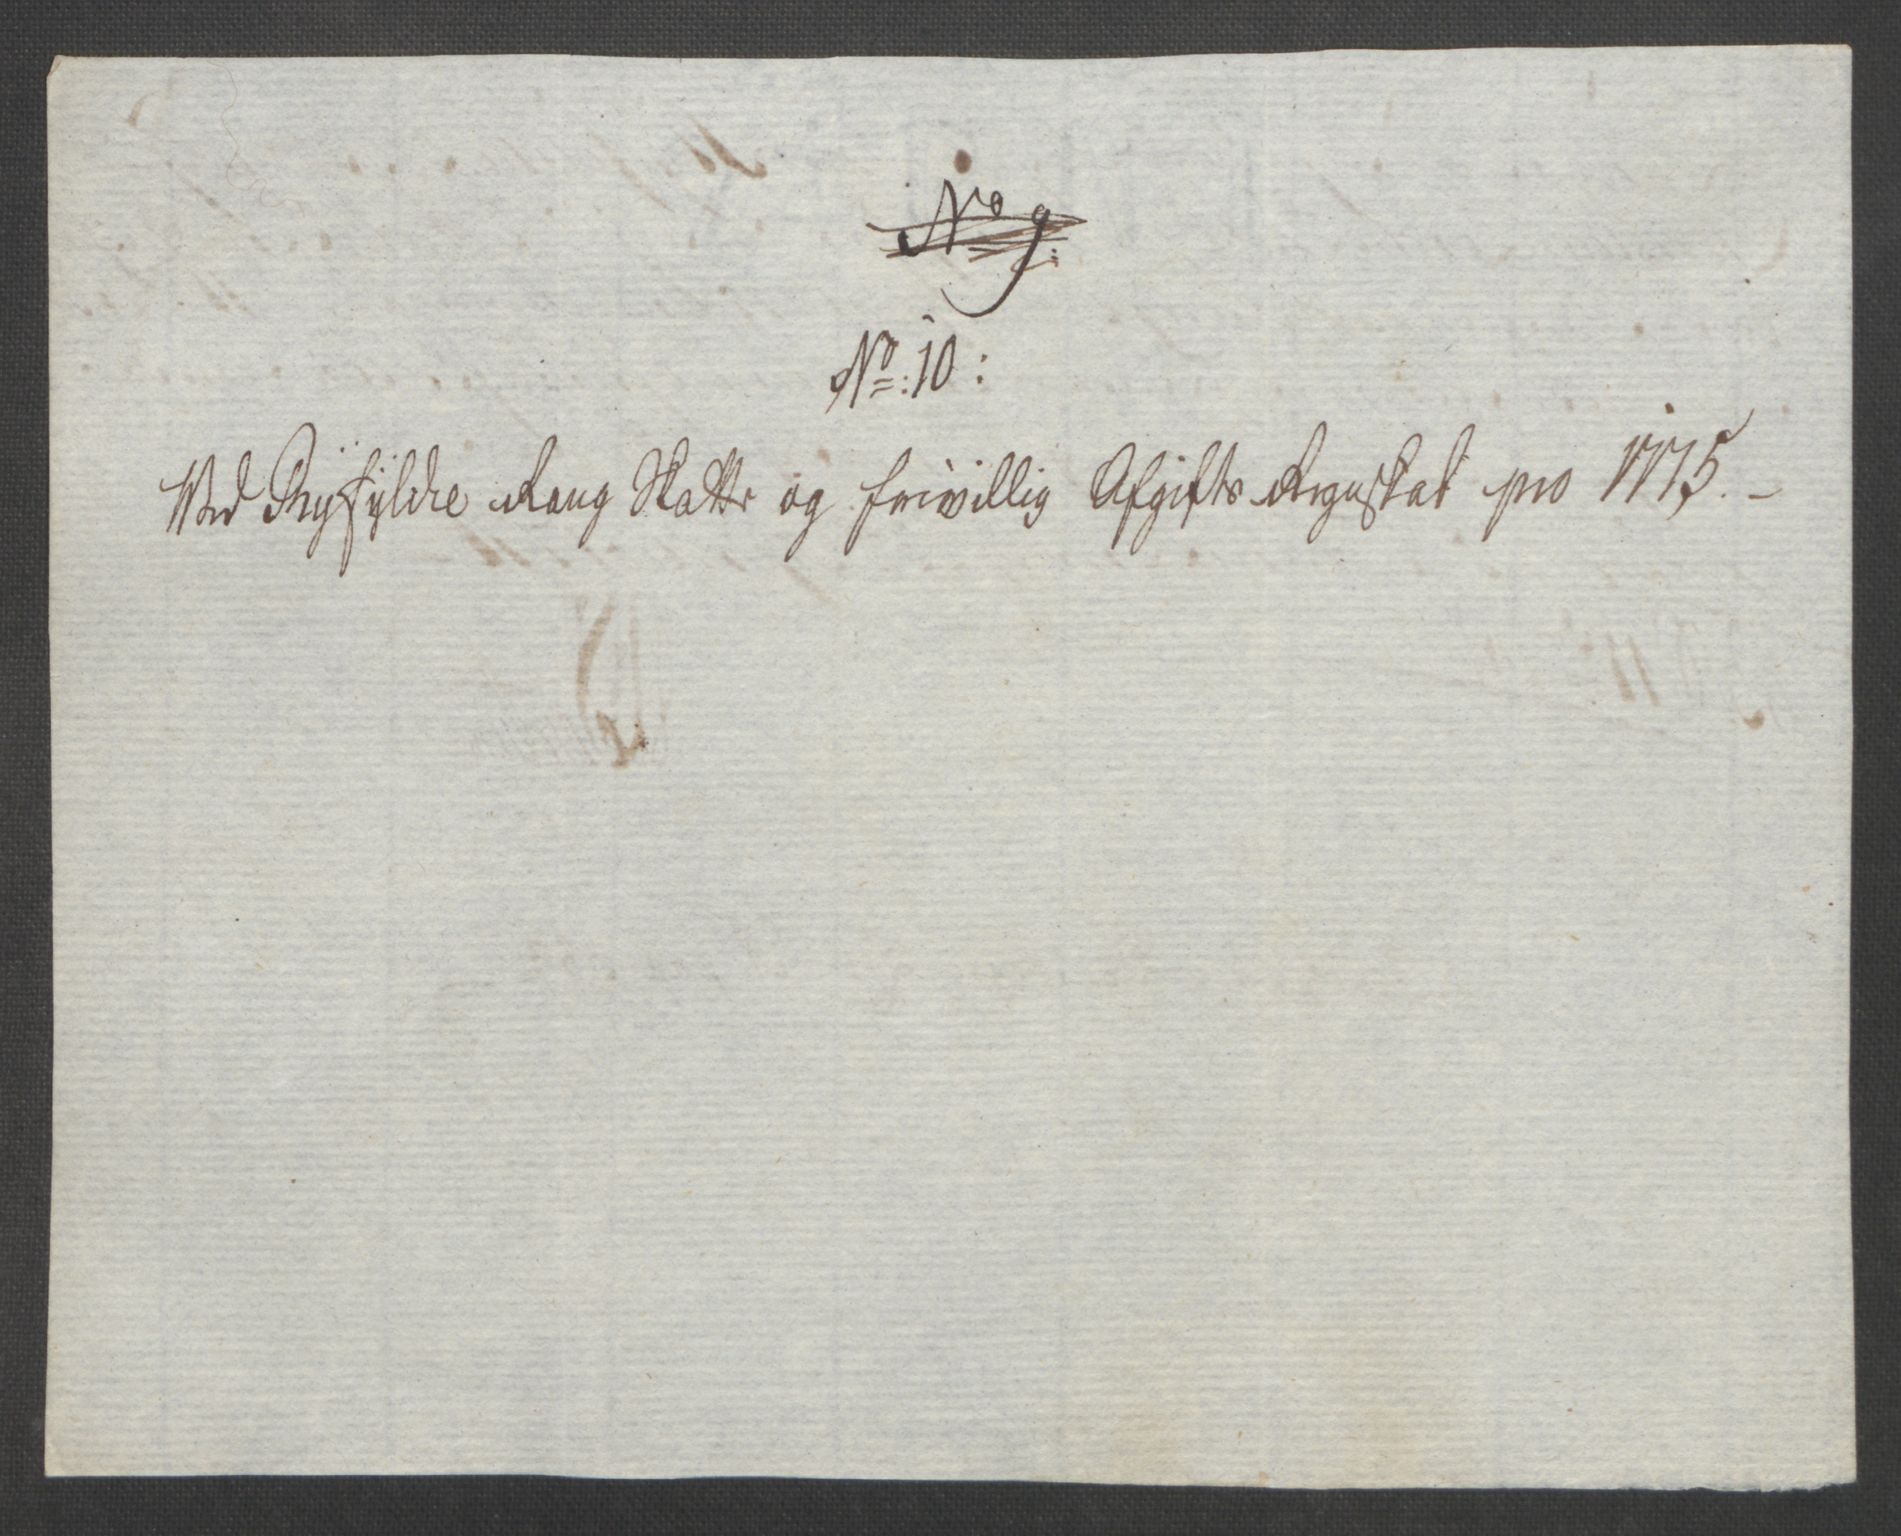 No 9
No: 10:
Ved Ryfylche Rang Skatts og frivillig Afgifts Regnskab pro 1775. -